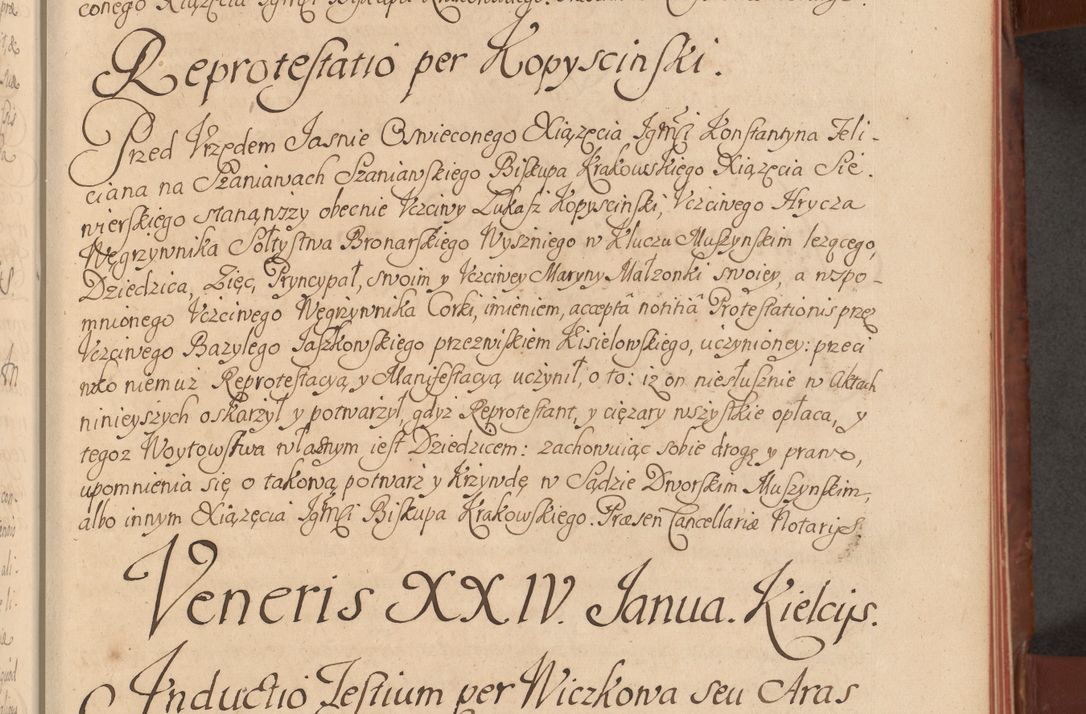 conego Xiązęcia Jgm̃ci Biskupa Krakowskiego.
Reprotestatio per Kopysciński.
Przed Vrzędem Jasnie Oswieconego Xiązęcia Jgm̃ci Konstantyna Feli-
ciana na Szaniawach Szaniawskiego Biskupa Krakowskiego Xiązęcia Sie-
wierskiego stanąwszy obecnie Vczciwy Lukasz Kopysciński, Vczciwego Hrycza
Węgrzywnika Sołtystwa Bronarskiego Wyszniego w Kluczu Muszynskim lezącego,
Dziedzica, Zięc, Pryncypał, swoim y Vczciwey Maryny Małzonki swoiey, a wspo-
mnionego Vczciwego Węgrzywnika Corki, imieniem, accepta᷃ notitia᷃ Protestationis przez
Vczciwego Bazylego Jaszkowskiego przezwiskiem Kisielowskiego, uczynioney: przeci
wko niemuz Reprotestacyą y Manifestacyą uczynił, o to: iz on niesłusznie w Aktach
ninieyszych oskarzył y potwarzył, gdyz Reprotestant, y cięzary wszystkie opłaca, y
tegoz Woytowstwa własnym iest Dziedzicem: zachowuiąc sobie drogę y prawo,
upomnienia się o takową potwarz y Krzywdę w Sądzie Dworskim Muszynskim,
albo innym Xiązęcia Jgm̃ci Biskupa Krakowskiego. Præsen Cancellariæ Notarijs
Veneris XXIV. Janua. Kielcijs.
Inductio Testium per Wiczkowa seu Aras